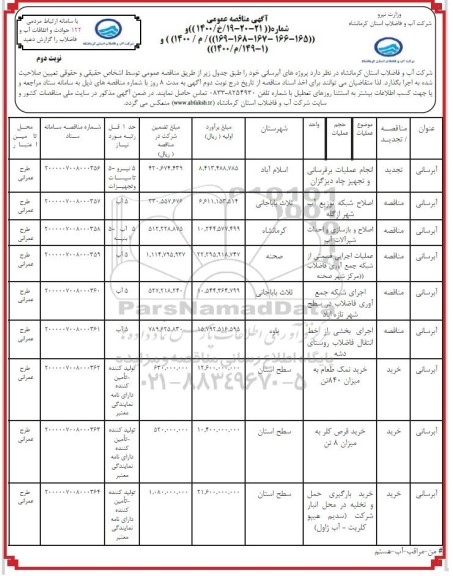 وزارت نیرو
شرکت آب و فاضلاب استان کرمانشاه
آگهی مناقصه عمومی
شماره((۲۱-۲۰-۱۹/خ/۱۴۰۰))و
((۱۶۵-۱۶۶-۱۶۷-۱۶۸-۱۶۹))/م/۱۴۰۰)) و
(۱-۱۴۹/م/۱۴۰۰))
با سامانه ارتباط مردمی
۱۲۲ حوادث و اتفاقات آب و
فاضلاب را گزارش دهید
نوبت دوم
شرکت آب و فاضلاب استان کرمانشاه در نظر دارد پروژه های آبرسانی خود را طبق جدول زیر از طریق مناقصه عمومی توسط اشخاص حقیقی و حقوقی تعیین صلاحیت
شده به اجرا بگذارد. لذا متقاضیان می توانند برای اخذ اسناد مناقصه از تاریخ درج نوبت دوم آگهی به مدت ۸ روز با شماره مناقصه های ذیل به سامانه ستاد مراجعه و
یا جهت کسب اطلاعات بیشتر به استثنا روزهای تعطیل با شماره تلفن ۸۲۵۴۹۳۰-۰۸۳۳ تماس حاصل نمایند. در ضمن آگهی مذکور در سایت ملی مناقصات کشور و
سایت شرکت آب و فاضلاب استان کرمانشاه (www.abfaksh.ir) منعکس می گردد.
عنوان | مناقصه / تجدید | موضوع عملیات | حجم عملیات | واحد | شهرستان | مبلغ برآورد اولیه (ریال) | مبلغ تضمین شرکت در مناقصه (ریال) | حداقل رتبه مورد نیاز | شماره مناقصه سامانه ستاد | محل تامین اعتبار
آبرسانی | تجدید | انجام عملیات برقرسانی و تجهیز چاه دیزگران | اسلام آباد | ۸,۴۱۳,۴۸۸,۷۸۵ | ۴۲۰,۶۷۴,۴۳۹ | ۵ نیرو-۵ تاسیسات وتجهیزات | ۲۰۰۰۰۰۷۰۰۸۰۰۰۳۵۶ | طرح عمرانی
آبرسانی | مناقصه | اصلاح شبکه توزیع آب شهر ازگله | ثلاث باباجانی | ۶,۶۱۱,۱۵۳,۵۱۴ | ۳۳۰,۵۵۷,۶۷۷ | ۵ آب | ۲۰۰۰۰۰۷۰۰۸۰۰۰۳۵۷ | طرح عمرانی
آبرسانی | مناقصه | اصلاح و بازسازی و احداث شیرآلات آب | کرمانشاه | ۱۰,۲۴۴,۵۷۷,۴۹۹ | ۵۱۲,۲۲۸,۸۷۵ | ۵ آب -۵ ابنیه | ۲۰۰۰۰۰۷۰۰۸۰۰۰۳۵۸ | طرح عمرانی
آبرسانی | مناقصه | عملیات اجرایی قسمتی از شبکه جمع آوری فاضلاب (مرکز شهر صحنه | صحنه | ۲۲,۲۹۵,۹۱۸,۷۴۷ | ۱,۱۱۴,۷۹۵,۹۳۷ | ۵ آب | ۲۰۰۰۰۰۷۰۰۸۰۰۰۳۵۹ | طرح عمرانی
آبرسانی | مناقصه | اجرای شبکه جمع آوری فاضلاب در سطح شهر تازه آباد | ثلاث باباجانی | ۱۰,۵۴۴,۳۶۴,۷۹۹ | ۵۲۷,۲۱۸,۲۴۰ | ۵ آب | ۲۰۰۰۰۰۷۰۰۸۰۰۰۳۶۰ | طرح عمرانی
آبرسانی | مناقصه | اجرای بخشی از خط انتقال فاضلاب روستای دشه | پاوه | ۱۵,۷۹۲,۵۱۶,۵۹۵ | ۷۸۹,۶۲۵,۸۳۰ | ۵ آب | ۲۰۰۰۰۰۷۰۰۸۰۰۰۳۶۱ | طرح عمرانی
آبرسانی | خرید | خرید نمک طعام به میزان ۸۴۰تن | سطح استان | ۱۲,۶۰۰,۰۰۰,۰۰۰ | ۶۳۰,۰۰۰,۰۰۰ | تولید کننده -تأمین کننده دارای نامه نمایندگی معتبر | ۲۰۰۰۰۰۷۰۰۸۰۰۰۳۶۲ | طرح عمرانی
آبرسانی | خرید | خرید قرص کلر به میزان ۸ تن | سطح استان | ۱۰,۴۰۰,۰۰۰,۰۰۰ | ۵۲۰,۰۰۰,۰۰۰ | تولید کننده -تأمین کننده دارای نامه نمایندگی معتبر | ۲۰۰۰۰۰۷۰۰۸۰۰۰۳۶۳ | طرح عمرانی
آبرسانی | خرید | خرید بارگیری حمل و تخلیه در محل انبار شرکت (سدیم هیپو کلریت - آب ژاول) | سطح استان | ۲۱,۶۰۰,۰۰۰,۰۰۰ | ۱,۰۸۰,۰۰۰,۰۰۰ | تولید کننده -تأمین کننده دارای نامه نمایندگی معتبر | ۲۰۰۰۰۰۷۰۰۸۰۰۰۳۶۴ | طرح عمرانی
ParsNamadData
۰۲۱-۸۸۳۴۹۶۷۰-۵
# من-مراقب-آب-هستم